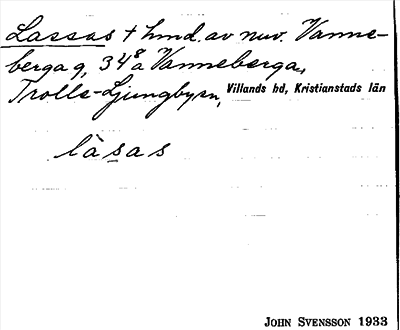 Lassas † hmd. av nuv. Vanne-
berga 9, 34⁸a Vanneberga,
Trolle-Ljungbysn, Villands hd, Kristianstads län
làsas
JOHN SVENSSON 1933